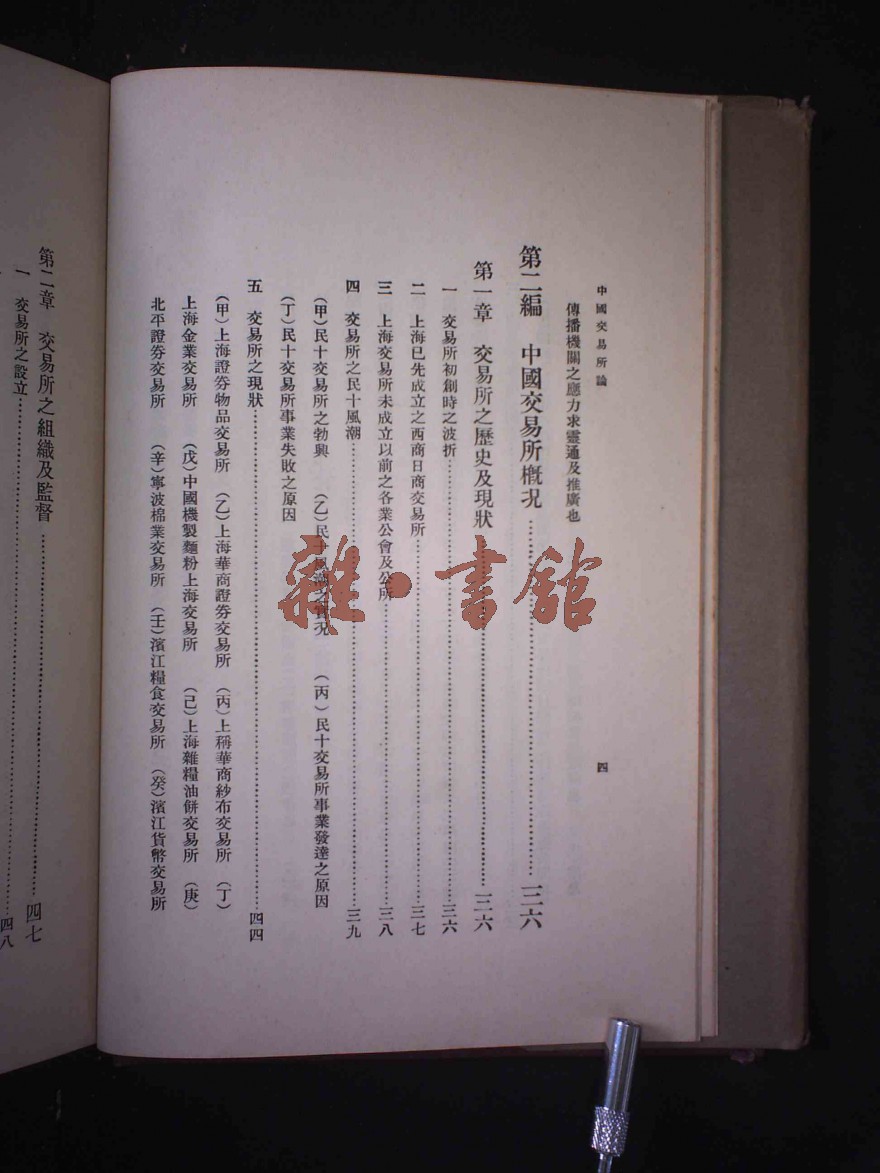 中國交易所論
四
傳播機關之應力求靈通及推廣也
第二編　中國交易所槪況……三六
第一章　交易所之歷史及現狀……三六
一　交易所初創時之波折……三六
二　上海已先成立之西商日商交易所……三七
三　上海交易所未成立以前之各業公會及公所……三八
四　交易所之民十風潮……三九
（甲）民十交易所之勃興　（乙）民十風潮之實況　（丙）民十交易所事業發達之原因
（丁）民十交易所事業失敗之原因
五　交易所之現狀……四四
（甲）上海證券物品交易所　（乙）上海華商證券交易所　（丙）上稱華商紗布交易所　（丁）
上海金業交易所　（戊）中國機製麵粉上海交易所　（己）上海雜糧油餅交易所　（庚）
北平證券交易所　（辛）寧波棉業交易所　（壬）濱江糧食交易所　（癸）濱江貨幣交易所
第二章　交易所之組織及監督……四七
一　交易所之設立……四八
雜·書館